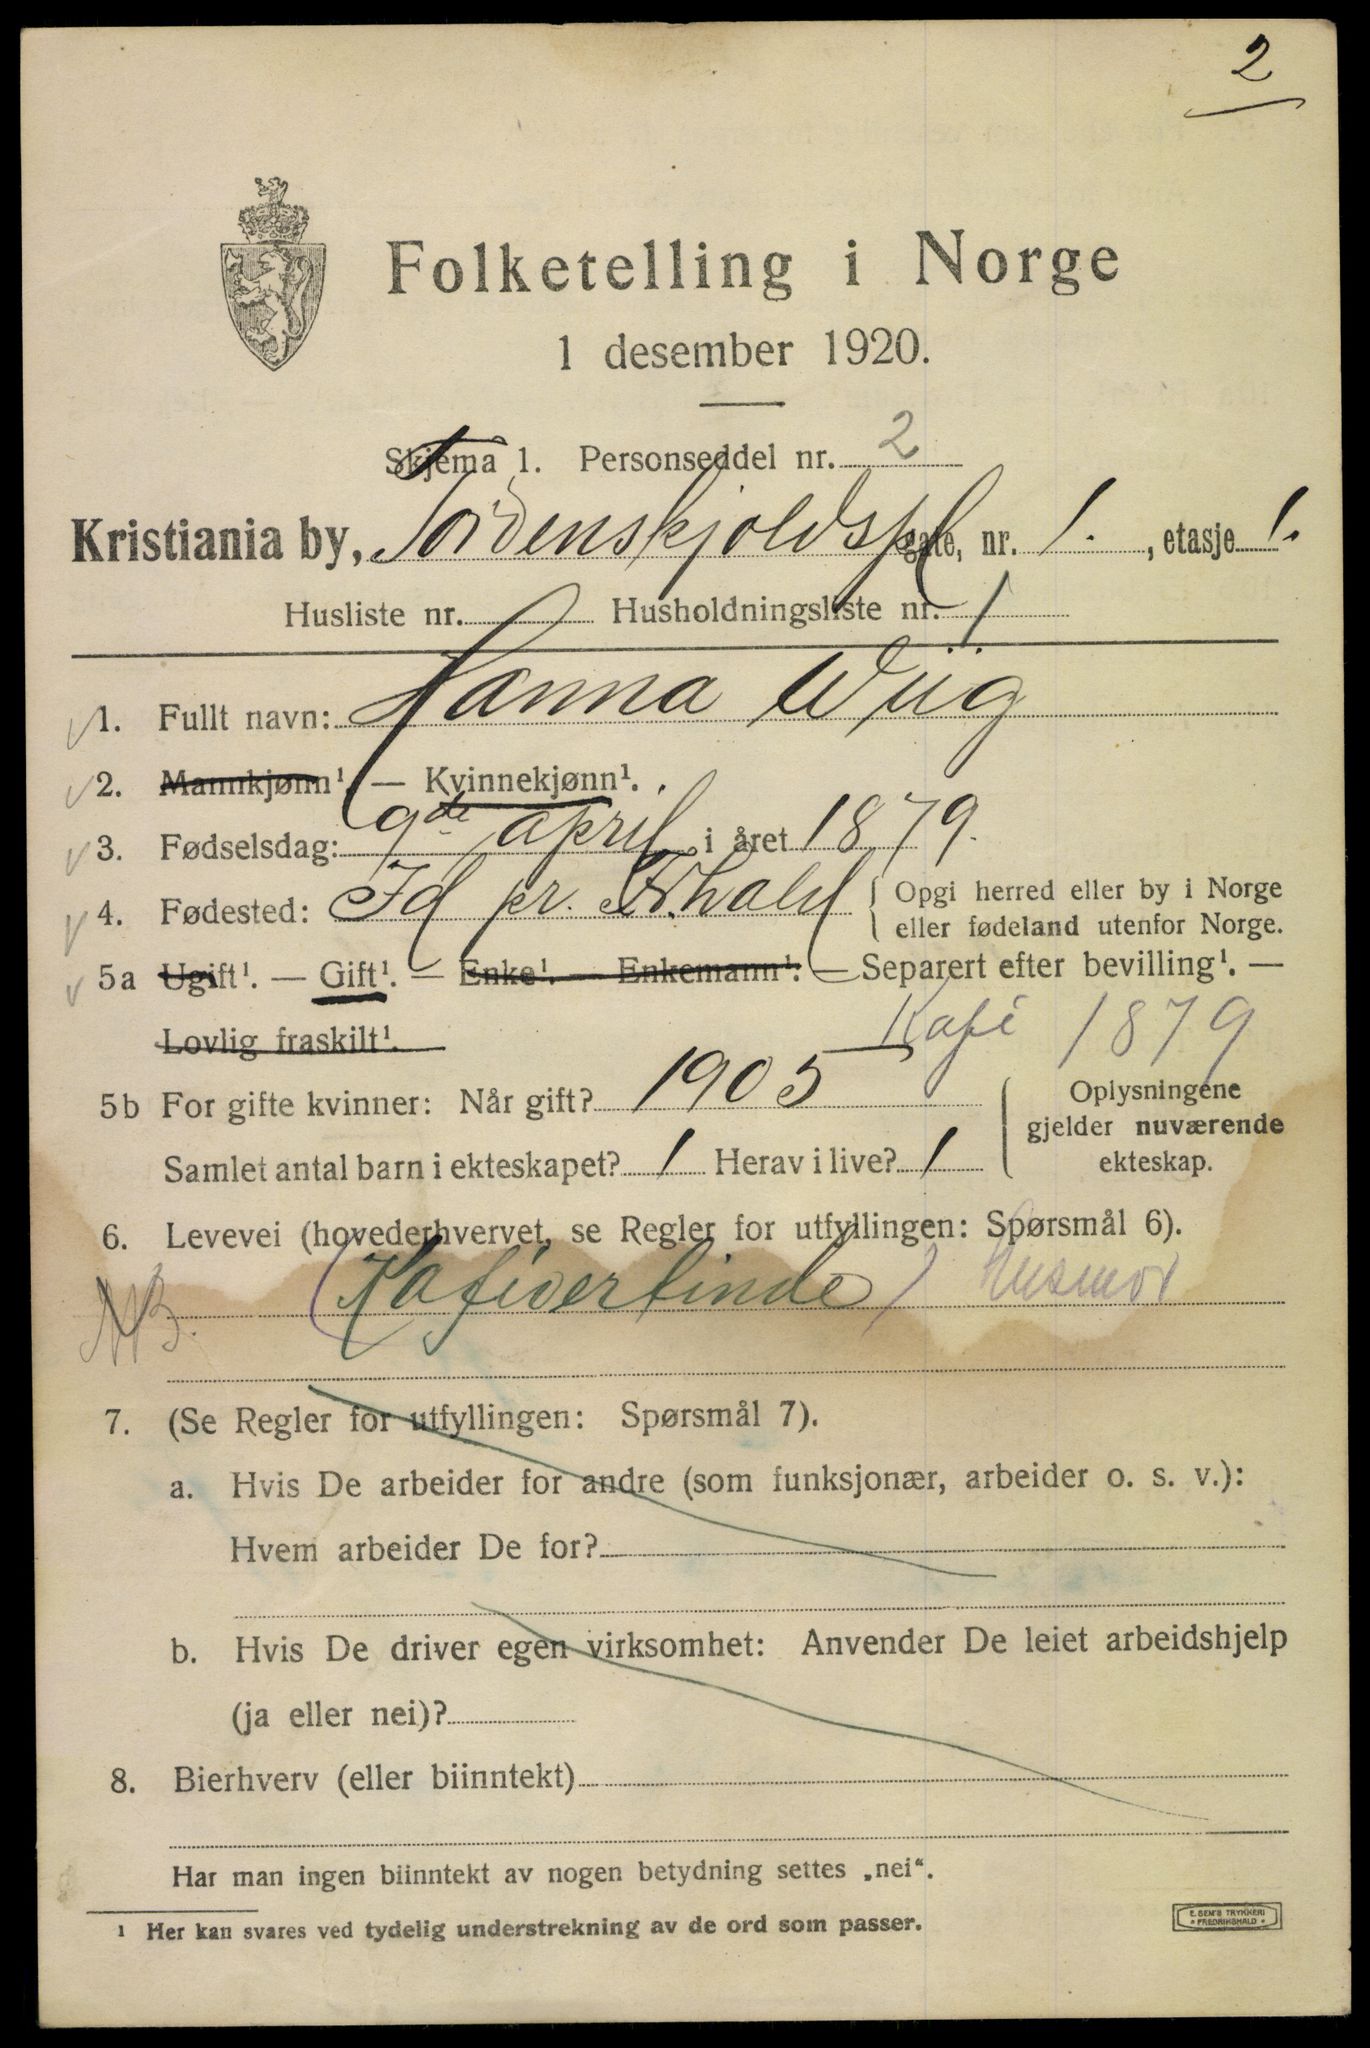 2
Folketelling i Norge
1 desember 1920.
Skjema 1. Personseddel nr. 2
Kristiania by, Tordenskjoldspl gate, nr. 1. , etasje 1.
Husliste nr. Husholdningsliste nr. 1
1. Fullt navn: Hanna Wiig
2. Mannkjønn¹. — Kvinnekjønn¹.
3. Fødselsdag: 9de april i året 1879.
4. Fødested: Id pr. Fr.hald { Opgi herred eller by i Norge
eller fødeland utenfor Norge.
5a Ugift¹. — Gift¹. — Enke¹. — Enkemann¹. — Separert efter bevilling¹. —
Lovlig fraskilt¹. Kafe 1879
5b For gifte kvinner: Når gift? 1905
Samlet antal barn i ekteskapet? 1 Herav i live? 1
Oplysningene
gjelder nuværende
ekteskap.
6. Levevei (hovederhvervet, se Regler for utfyllingen: Spørsmål 6).
NB. (Kafévertinde) Husmor
7. (Se Regler for utfyllingen: Spørsmål 7).
a. Hvis De arbeider for andre (som funksjonær, arbeider o. s. v.):
Hvem arbeider De for?
b. Hvis De driver egen virksomhet: Anvender De leiet arbeidshjelp
(ja eller nei)?
8. Bierhverv (eller biinntekt)
Har man ingen biinntekt av nogen betydning settes „nei“.
¹ Her kan svares ved tydelig understrekning av de ord som passer.
E. SEM'S TRYKKERI
* FREDRIKSHALD *